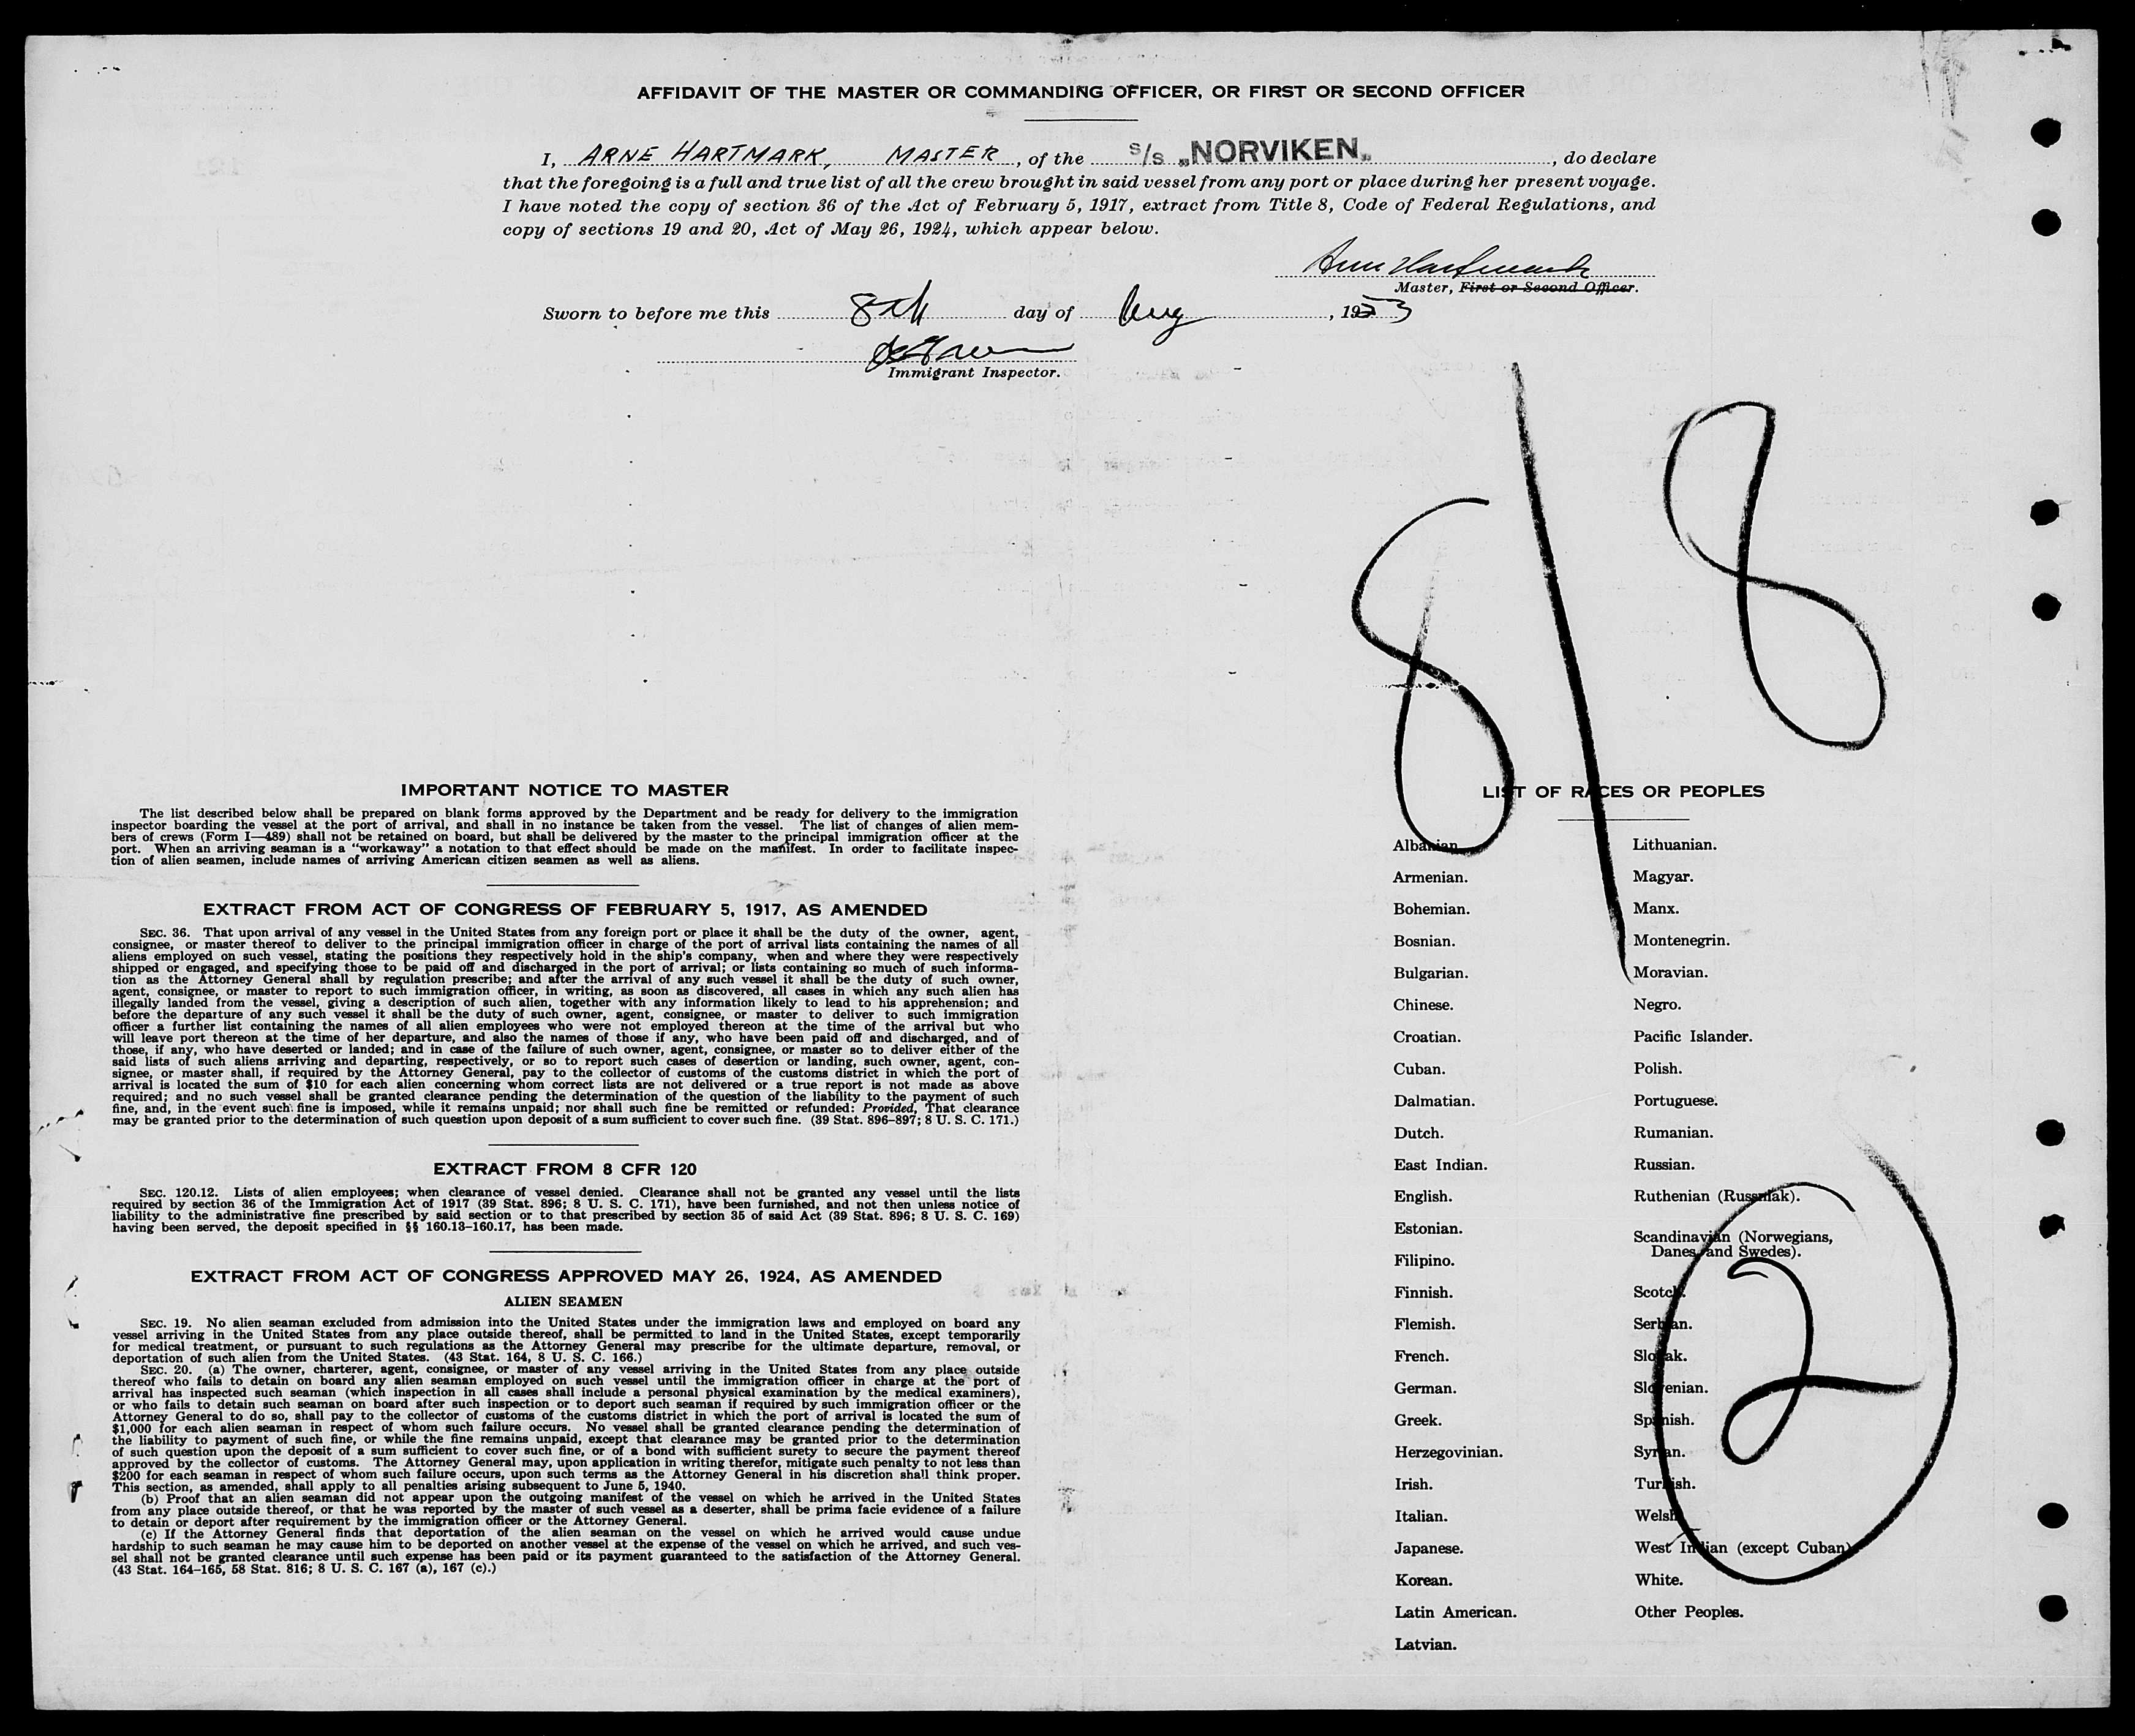 AFFIDAVIT OF THE MASTER OR COMMANDING OFFICER, OR FIRST OR SECOND OFFICER
I, ARNE HARTMARK, MASTER, of the s/s „NORVIKEN„, do declare
that the foregoing is a full and true list of all the crew brought in said vessel from any port or place during her present voyage.
I have noted the copy of section 36 of the Act of February 5, 1917, extract from Title 8, Code of Federal Regulations, and
copy of sections 19 and 20, Act of May 26, 1924, which appear below.
Arne Hartmark
Master, First or Second Officer.
Sworn to before me this 8th day of Aug, 1953
Immigrant Inspector.
8/8
IMPORTANT NOTICE TO MASTER
The list described below shall be prepared on blank forms approved by the Department and be ready for delivery to the immigration
inspector boarding the vessel at the port of arrival, and shall in no instance be taken from the vessel. The list of changes of alien mem-
bers of crews (Form I—489) shall not be retained on board, but shall be delivered by the master to the principal immigration officer at the
port. When an arriving seaman is a “workaway” a notation to that effect should be made on the manifest. In order to facilitate inspec-
tion of alien seamen, include names of arriving American citizen seamen as well as aliens.
EXTRACT FROM ACT OF CONGRESS OF FEBRUARY 5, 1917, AS AMENDED
SEC. 36. That upon arrival of any vessel in the United States from any foreign port or place it shall be the duty of the owner, agent,
consignee, or master thereof to deliver to the principal immigration officer in charge of the port of arrival lists containing the names of all
aliens employed on such vessel, stating the positions they respectively hold in the ship's company, when and where they were respectively
shipped or engaged, and specifying those to be paid off and discharged in the port of arrival; or lists containing so much of such informa-
tion as the Attorney General shall by regulation prescribe; and after the arrival of any such vessel it shall be the duty of such owner,
agent, consignee, or master to report to such immigration officer, in writing, as soon as discovered, all cases in which any such alien has
illegally landed from the vessel, giving a description of such alien, together with any information likely to lead to his apprehension; and
before the departure of any such vessel it shall be the duty of such owner, agent, consignee, or master to deliver to such immigration
officer a further list containing the names of all alien employees who were not employed thereon at the time of the arrival but who
will leave port thereon at the time of her departure, and also the names of those if any, who have been paid off and discharged, and of
those, if any, who have deserted or landed; and in case of the failure of such owner, agent, consignee, or master so to deliver either of the
said lists of such aliens arriving and departing, respectively, or so to report such cases of desertion or landing, such owner, agent, con-
signee, or master shall, if required by the Attorney General, pay to the collector of customs of the customs district in which the port of
arrival is located the sum of $10 for each alien concerning whom correct lists are not delivered or a true report is not made as above
required; and no such vessel shall be granted clearance pending the determination of the question of the liability to the payment of such
fine, and, in the event such fine is imposed, while it remains unpaid; nor shall such fine be remitted or refunded: Provided, That clearance
may be granted prior to the determination of such question upon deposit of a sum sufficient to cover such fine. (39 Stat. 896–897; 8 U. S. C. 171.)
EXTRACT FROM 8 CFR 120
SEC. 120.12. Lists of alien employees; when clearance of vessel denied. Clearance shall not be granted any vessel until the lists
required by section 36 of the Immigration Act of 1917 (39 Stat. 896; 8 U. S. C. 171), have been furnished, and not then unless notice of
liability to the administrative fine prescribed by said section or to that prescribed by section 35 of said Act (39 Stat. 896; 8 U. S. C. 169)
having been served, the deposit specified in §§ 160.13–160.17, has been made.
EXTRACT FROM ACT OF CONGRESS APPROVED MAY 26, 1924, AS AMENDED
ALIEN SEAMEN
SEC. 19. No alien seaman excluded from admission into the United States under the immigration laws and employed on board any
vessel arriving in the United States from any place outside thereof, shall be permitted to land in the United States, except temporarily
for medical treatment, or pursuant to such regulations as the Attorney General may prescribe for the ultimate departure, removal, or
deportation of such alien from the United States. (43 Stat. 164, 8 U. S. C. 166.)
SEC. 20. (a) The owner, charterer, agent, consignee, or master of any vessel arriving in the United States from any place outside
thereof who fails to detain on board any alien seaman employed on such vessel until the immigration officer in charge at the port of
arrival has inspected such seaman (which inspection in all cases shall include a personal physical examination by the medical examiners),
or who fails to detain such seaman on board after such inspection or to deport such seaman if required by such immigration officer or the
Attorney General to do so, shall pay to the collector of customs of the customs district in which the port of arrival is located the sum of
$1,000 for each alien seaman in respect of whom such failure occurs. No vessel shall be granted clearance pending the determination of
the liability to payment of such fine, or while the fine remains unpaid, except that clearance may be granted prior to the determination
of such question upon the deposit of a sum sufficient to cover such fine, or of a bond with sufficient surety to secure the payment thereof
approved by the collector of customs. The Attorney General may, upon application in writing therefor, mitigate such penalty to not less than
$200 for each seaman in respect of whom such failure occurs, upon such terms as the Attorney General in his discretion shall think proper.
This section, as amended, shall apply to all penalties arising subsequent to June 5, 1940.
(b) Proof that an alien seaman did not appear upon the outgoing manifest of the vessel on which he arrived in the United States
from any place outside thereof, or that he was reported by the master of such vessel as a deserter, shall be prima facie evidence of a failure
to detain or deport after requirement by the immigration officer or the Attorney General.
(c) If the Attorney General finds that deportation of the alien seaman on the vessel on which he arrived would cause undue
hardship to such seaman he may cause him to be deported on another vessel at the expense of the vessel on which he arrived, and such ves-
sel shall not be granted clearance until such expense has been paid or its payment guaranteed to the satisfaction of the Attorney General.
(43 Stat. 164–165, 58 Stat. 816; 8 U. S. C. 167 (a), 167 (c).)
LIST OF RACES OR PEOPLES
Albanian.
Armenian.
Bohemian.
Bosnian.
Bulgarian.
Chinese.
Croatian.
Cuban.
Dalmatian.
Dutch.
East Indian.
English.
Estonian.
Filipino.
Finnish.
Flemish.
French.
German.
Greek.
Herzegovinian.
Irish.
Italian.
Japanese.
Korean.
Latin American.
Latvian.
Lithuanian.
Magyar.
Manx.
Montenegrin.
Moravian.
Negro.
Pacific Islander.
Polish.
Portuguese.
Rumanian.
Russian.
Ruthenian (Russniak).
Scandinavian (Norwegians,
Danes, and Swedes).
Scotch.
Serbian.
Slovak.
Slovenian.
Spanish.
Syrian.
Turkish.
Welsh.
West Indian (except Cuban).
White.
Other Peoples.
2